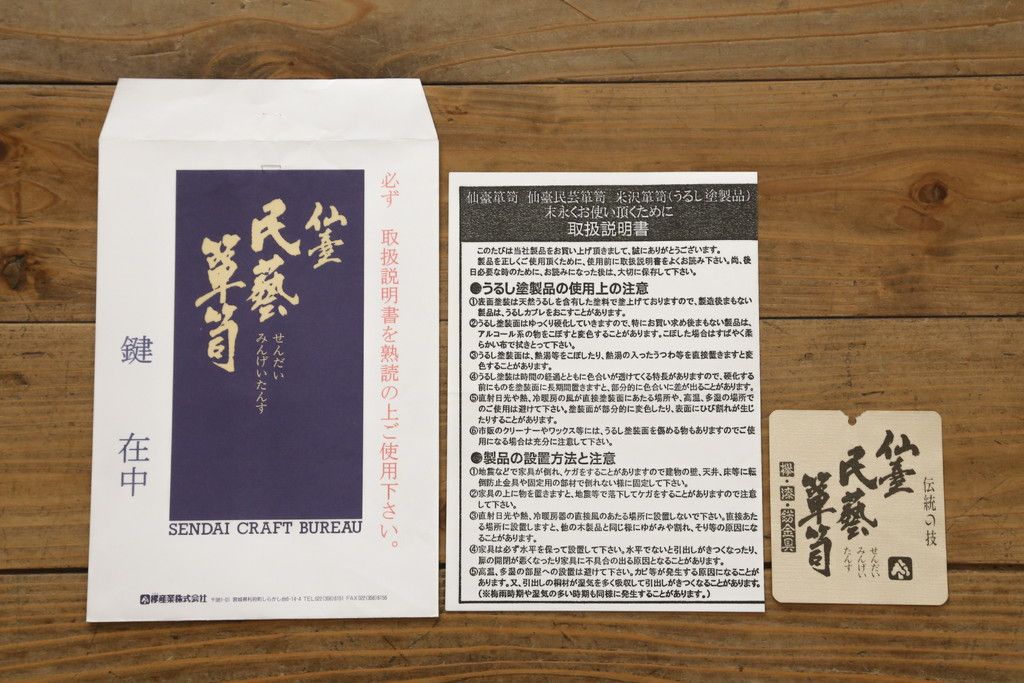 必ず 取扱説明書を熟読の上ご使用下さい。
仙臺
民藝
箪笥
せんだい
みんげいたんす
鍵 在中
SENDAI CRAFT BUREAU
欅産業株式会社 〒981-01 宮城県利府町しらかし台6-14-4 TEL022(356)6151 FAX022(356)6156
仙臺箪笥 仙臺民芸箪笥 米沢箪笥(うるし塗製品)
末永くお使い頂くために
取扱説明書
このたびは当社製品をお買い上げ頂きまして、誠にありがとうございます。
製品を正しくご使用頂くために、使用前に取扱説明書をよくお読み下さい。尚、後
日必要な時のために、お読みになった後は、大切に保存して下さい。
●うるし塗製品の使用上の注意
①表面塗装は天然うるしを含有した塗料で塗上げておりますので、製造後まもない
製品は、うるしカブレをおこすことがあります。
②うるし塗装面はゆっくり硬化していきますので、特にお買い求め後まもない製品は、
アルコール系の物をこぼすと変色することがあります。こぼした場合はすばやく柔
らかい布で拭きとって下さい。
③うるし塗装面は、熱湯等をこぼしたり、熱湯の入ったうつわ等を直接置きますと変
色することがあります。
④うるし塗装は時間の経過とともに色合いが透けてくる特長がありますので、硬化する
前にものを塗装面に長期間置きますと、部分的に色合いに差が出ることがあります。
⑤直射日光や熱、冷暖房の風が直接塗装面にあたる場所や、高温、多湿の場所で
のご使用は避けて下さい。塗装面が部分的に変色したり、表面にひび割れが生じ
たりすることがあります。
⑥市販のクリーナーやワックス等には、うるし塗装面を傷める物もありますのでご使
用になる場合は充分に注意して下さい。
●製品の設置方法と注意
①地震などで家具が倒れ、ケガをすることがありますので建物の壁、天井、床等に転
倒防止金具や固定用の部材で倒れない様に固定して下さい。
②家具の上に物を置きますと、地震等で落下してケガをすることがありますので注意
して下さい。
③直射日光や熱、冷暖房器の直接風のあたる場所に設置しないで下さい。直接あた
る場所に設置しますと、他の木製品と同じ様にゆがみや割れ、そり等の原因にな
ることがあります。
④家具は必ず水平を保って設置して下さい。水平でないと引出しがきつくなったり、
扉の開閉が悪くなったり家具に不具合の出る原因になります。
⑤高温、多湿の部屋への設置は避けて下さい。カビ等が発生する原因になることが
あります。又、引出しの桐材が湿気を多く吸収して引出しがきつくなることがあります。
(※梅雨時期や湿気の多い時期も同様に発生することがあります。)
伝統の技
仙臺
民藝
箪笥
せんだい
みんげい
たんす
欅・漆・飾金具